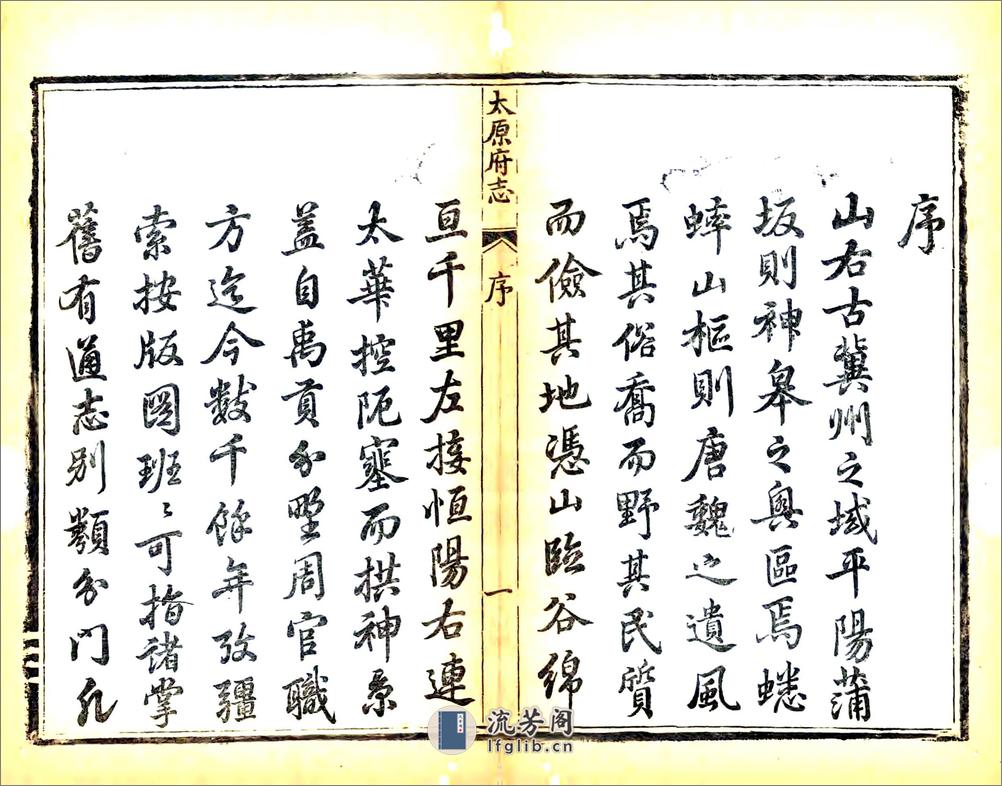 序
山右古冀州之域平陽蒲
坂則神皋之奥區焉蟋
蟀山樞則唐魏之遺風
焉其俗喬而野其民質
而儉其地憑山臨谷綿
太原府志
序
一
亘千里左接恒陽右連
太華控阨塞而拱神京
蓋自禹貢分野周官職
方迄今數千餘年攷疆
索按版圖班〻可指諸掌
舊有通志別類分門凡
流芳阁
lfglib.cn